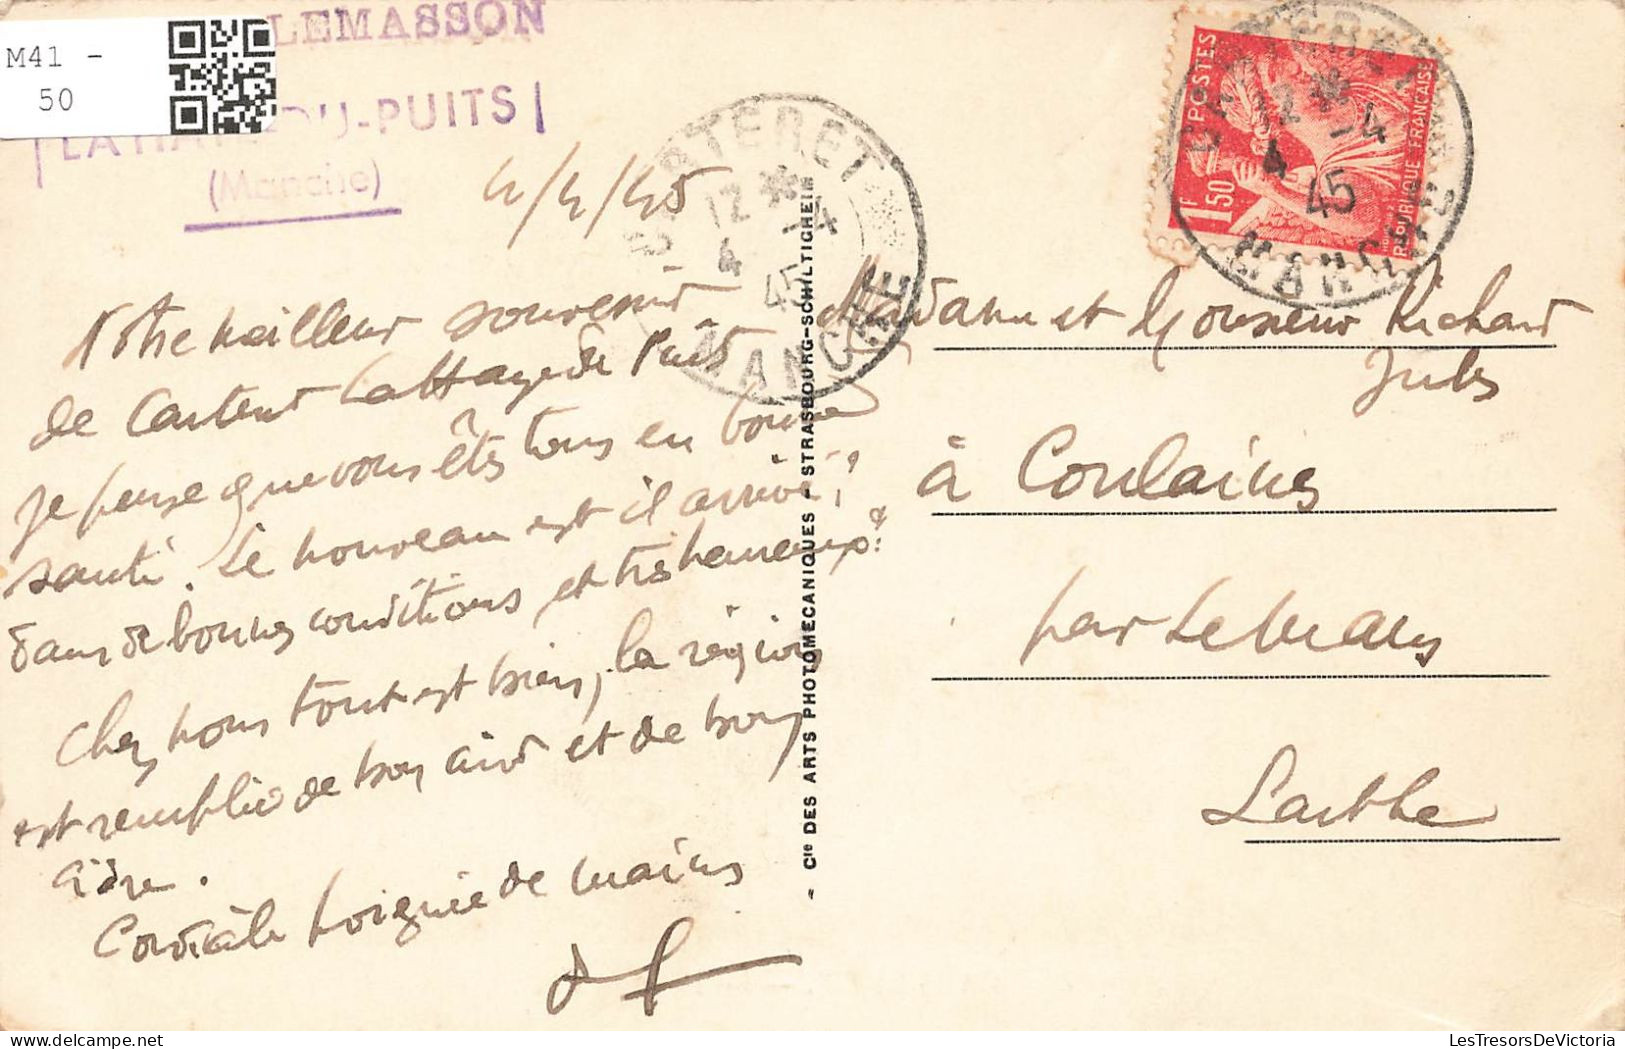 M41 -
50
LEMASSON
LA HA DU-PUITS
(Manche)
4/4/45
CARTERET
12 * 4 -4 45
MANCHE
POSTES
1F,50
REPUBLIQUE FRANCAISE
12 * 4 -4 45
MANCHE
Notre meilleur souvenir
de Carteret
je pense que vous êtes tous en bonne
santé. Le nouveau est il arrivé ?
dans de bonnes conditions et très heureux ?
Chez nous tout est bien, la région
est remplie de bon air et de bon
cidre.
Cordiale poignée de mains
- Cie DES ARTS PHOTOMECANIQUES - STRASBOURG-SCHILTIGHEIM
Madame et Monsieur Richard
Jules
à Coulaines
par Le Mans
Sarthe
LesTresorsDeVictoria.com